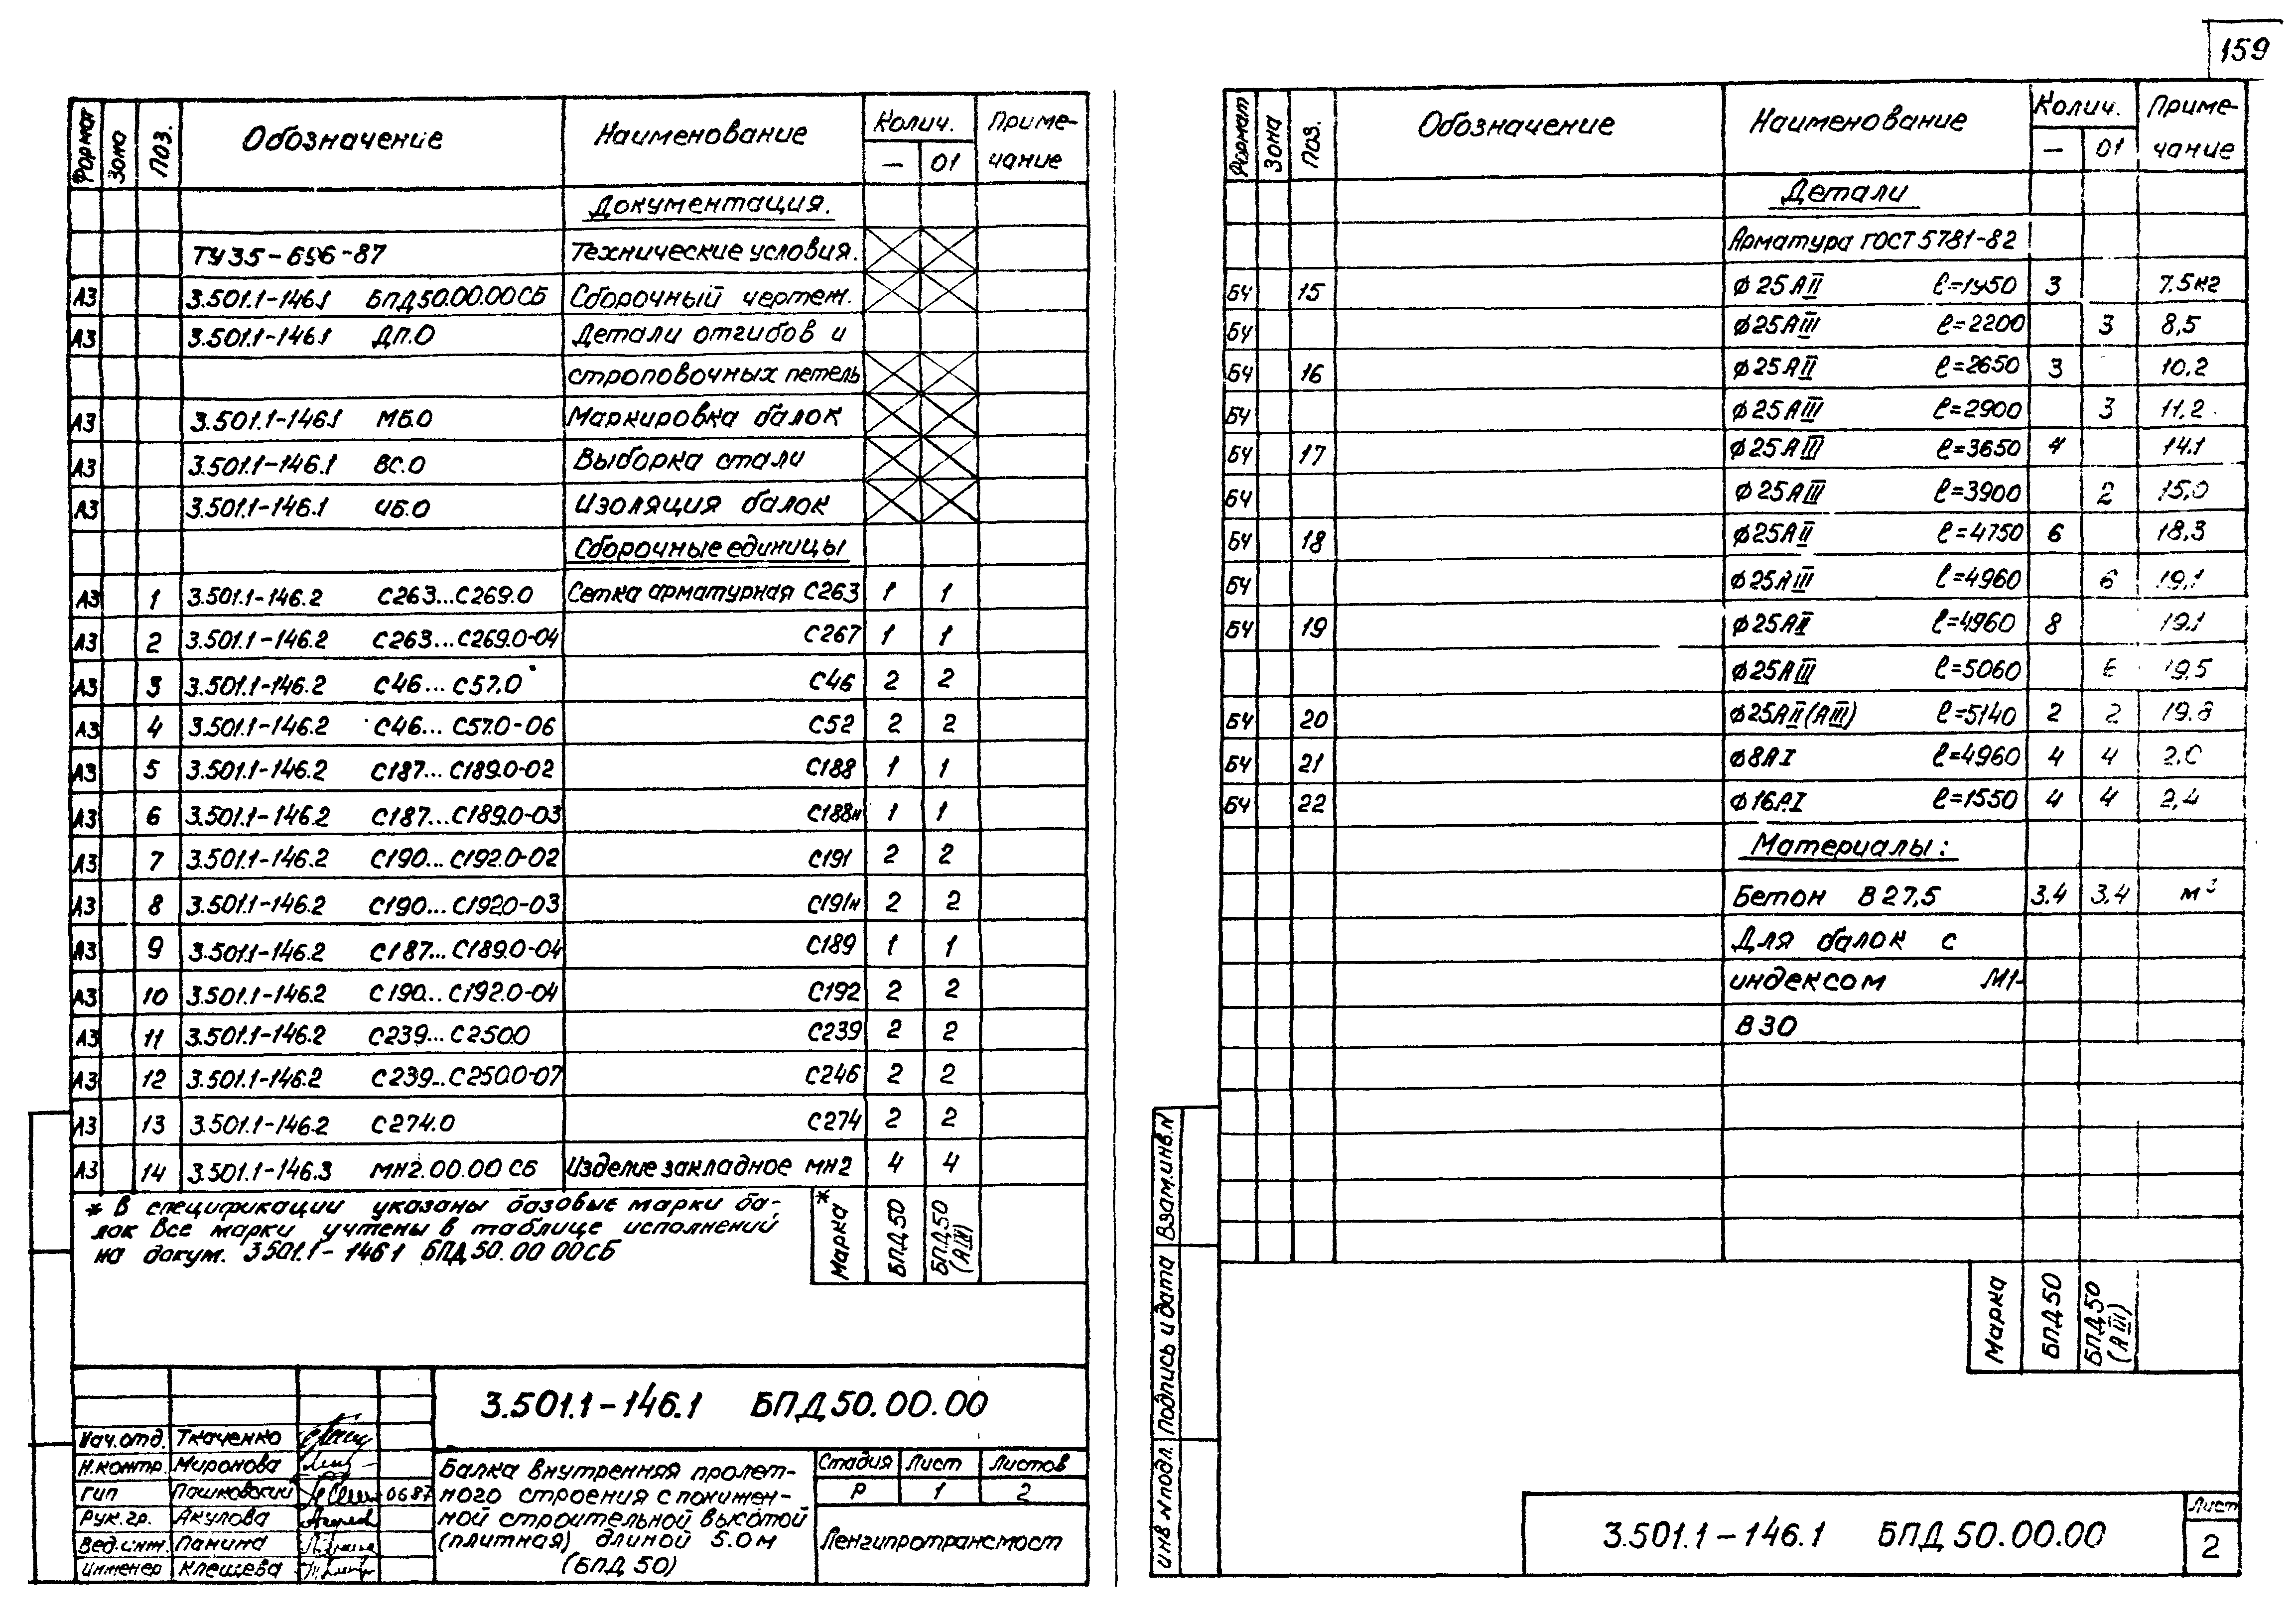 159
Формат Зона Поз. Обозначение Наименование Колич. Приме-
— 01 чание
Документация.
ТУ35-696-87 Технические условия.
А3 3.501.1-146.1 БПД50.00.00СБ Сборочный чертеж.
А3 3.501.1-146.1 ДП.0 Детали отгибов и
строповочных петель
А3 3.501.1-146.1 МБ.0 Маркировка балок
А3 3.501.1-146.1 ВС.0 Выборка стали
А3 3.501.1-146.1 ИБ.0 Изоляция балок
Сборочные единицы
А3 1 3.501.1-146.2 С263...С269.0 Сетка арматурная С263 1 1
А3 2 3.501.1-146.2 С263...С269.0-04 С267 1 1
А3 3 3.501.1-146.2 С46...С57.0 С46 2 2
А3 4 3.501.1-146.2 С46...С57.0-06 С52 2 2
А3 5 3.501.1-146.2 С187...С189.0-02 С188 1 1
А3 6 3.501.1-146.2 С187...С189.0-03 С188н 1 1
А3 7 3.501.1-146.2 С190...С192.0-02 С191 2 2
А3 8 3.501.1-146.2 С190...С192.0-03 С191н 2 2
А3 9 3.501.1-146.2 С187...С189.0-04 С189 1 1
А3 10 3.501.1-146.2 С190...С192.0-04 С192 2 2
А3 11 3.501.1-146.2 С239...С250.0 С239 2 2
А3 12 3.501.1-146.2 С239...С250.0-07 С246 2 2
А3 13 3.501.1-146.2 С274.0 С274 2 2
А3 14 3.501.1-146.3 МН2.00.00 СБ Изделие закладное МН2 4 4
* В спецификации указаны базовые марки ба-
лок Все марки учтены в таблице исполнений
на докум. 3.501.1-146.1 БПД50.00 00СБ
Марка* БПД50 БПД50 (АIII)
3.501.1-146.1 БПД50.00.00
Нач.отд. Ткаченко
Н.контр. Миронова
ГИП Пашковский 0687
Рук.гр. Акулова
Вед.инж. Панина
Инженер Клещева
Балка внутренняя пролет-
ного строения с понижен-
ной строительной высотой
(плитная) длиной 5.0м
(БПД 50)
Стадия Лист Листов
Р 1 2
Ленгипротрансмост
Формат Зона Поз. Обозначение Наименование Колич. Приме-
— 01 чание
Детали
Арматура ГОСТ 5781-82
БЧ 15 ϕ25АII ℓ=1950 3 7.5кг
БЧ ϕ25АIII ℓ=2200 3 8,5
БЧ 16 ϕ25АII ℓ=2650 3 10.2
БЧ ϕ25АIII ℓ=2900 3 11.2
БЧ 17 ϕ25АIII ℓ=3650 4 14.1
БЧ ϕ25АIII ℓ=3900 2 15,0
БЧ 18 ϕ25АII ℓ=4750 6 18,3
БЧ ϕ25АIII ℓ=4960 6 19,1
БЧ 19 ϕ25АII ℓ=4960 8 19.1
ϕ25АIII ℓ=5060 6 19,5
БЧ 20 ϕ25АII(АIII) ℓ=5140 2 2 19.8
БЧ 21 ϕ8АI ℓ=4960 4 4 2,0
БЧ 22 ϕ16АI ℓ=1550 4 4 2,4
Материалы:
Бетон В27,5 3.4 3,4 м³
Для балок с
индексом М1-
В30
Марка БПД50 БПД50 (АIII)
Инв N подл. Подпись и дата Взам.инв.N
3.501.1-146.1 БПД50.00.00
Лист
2